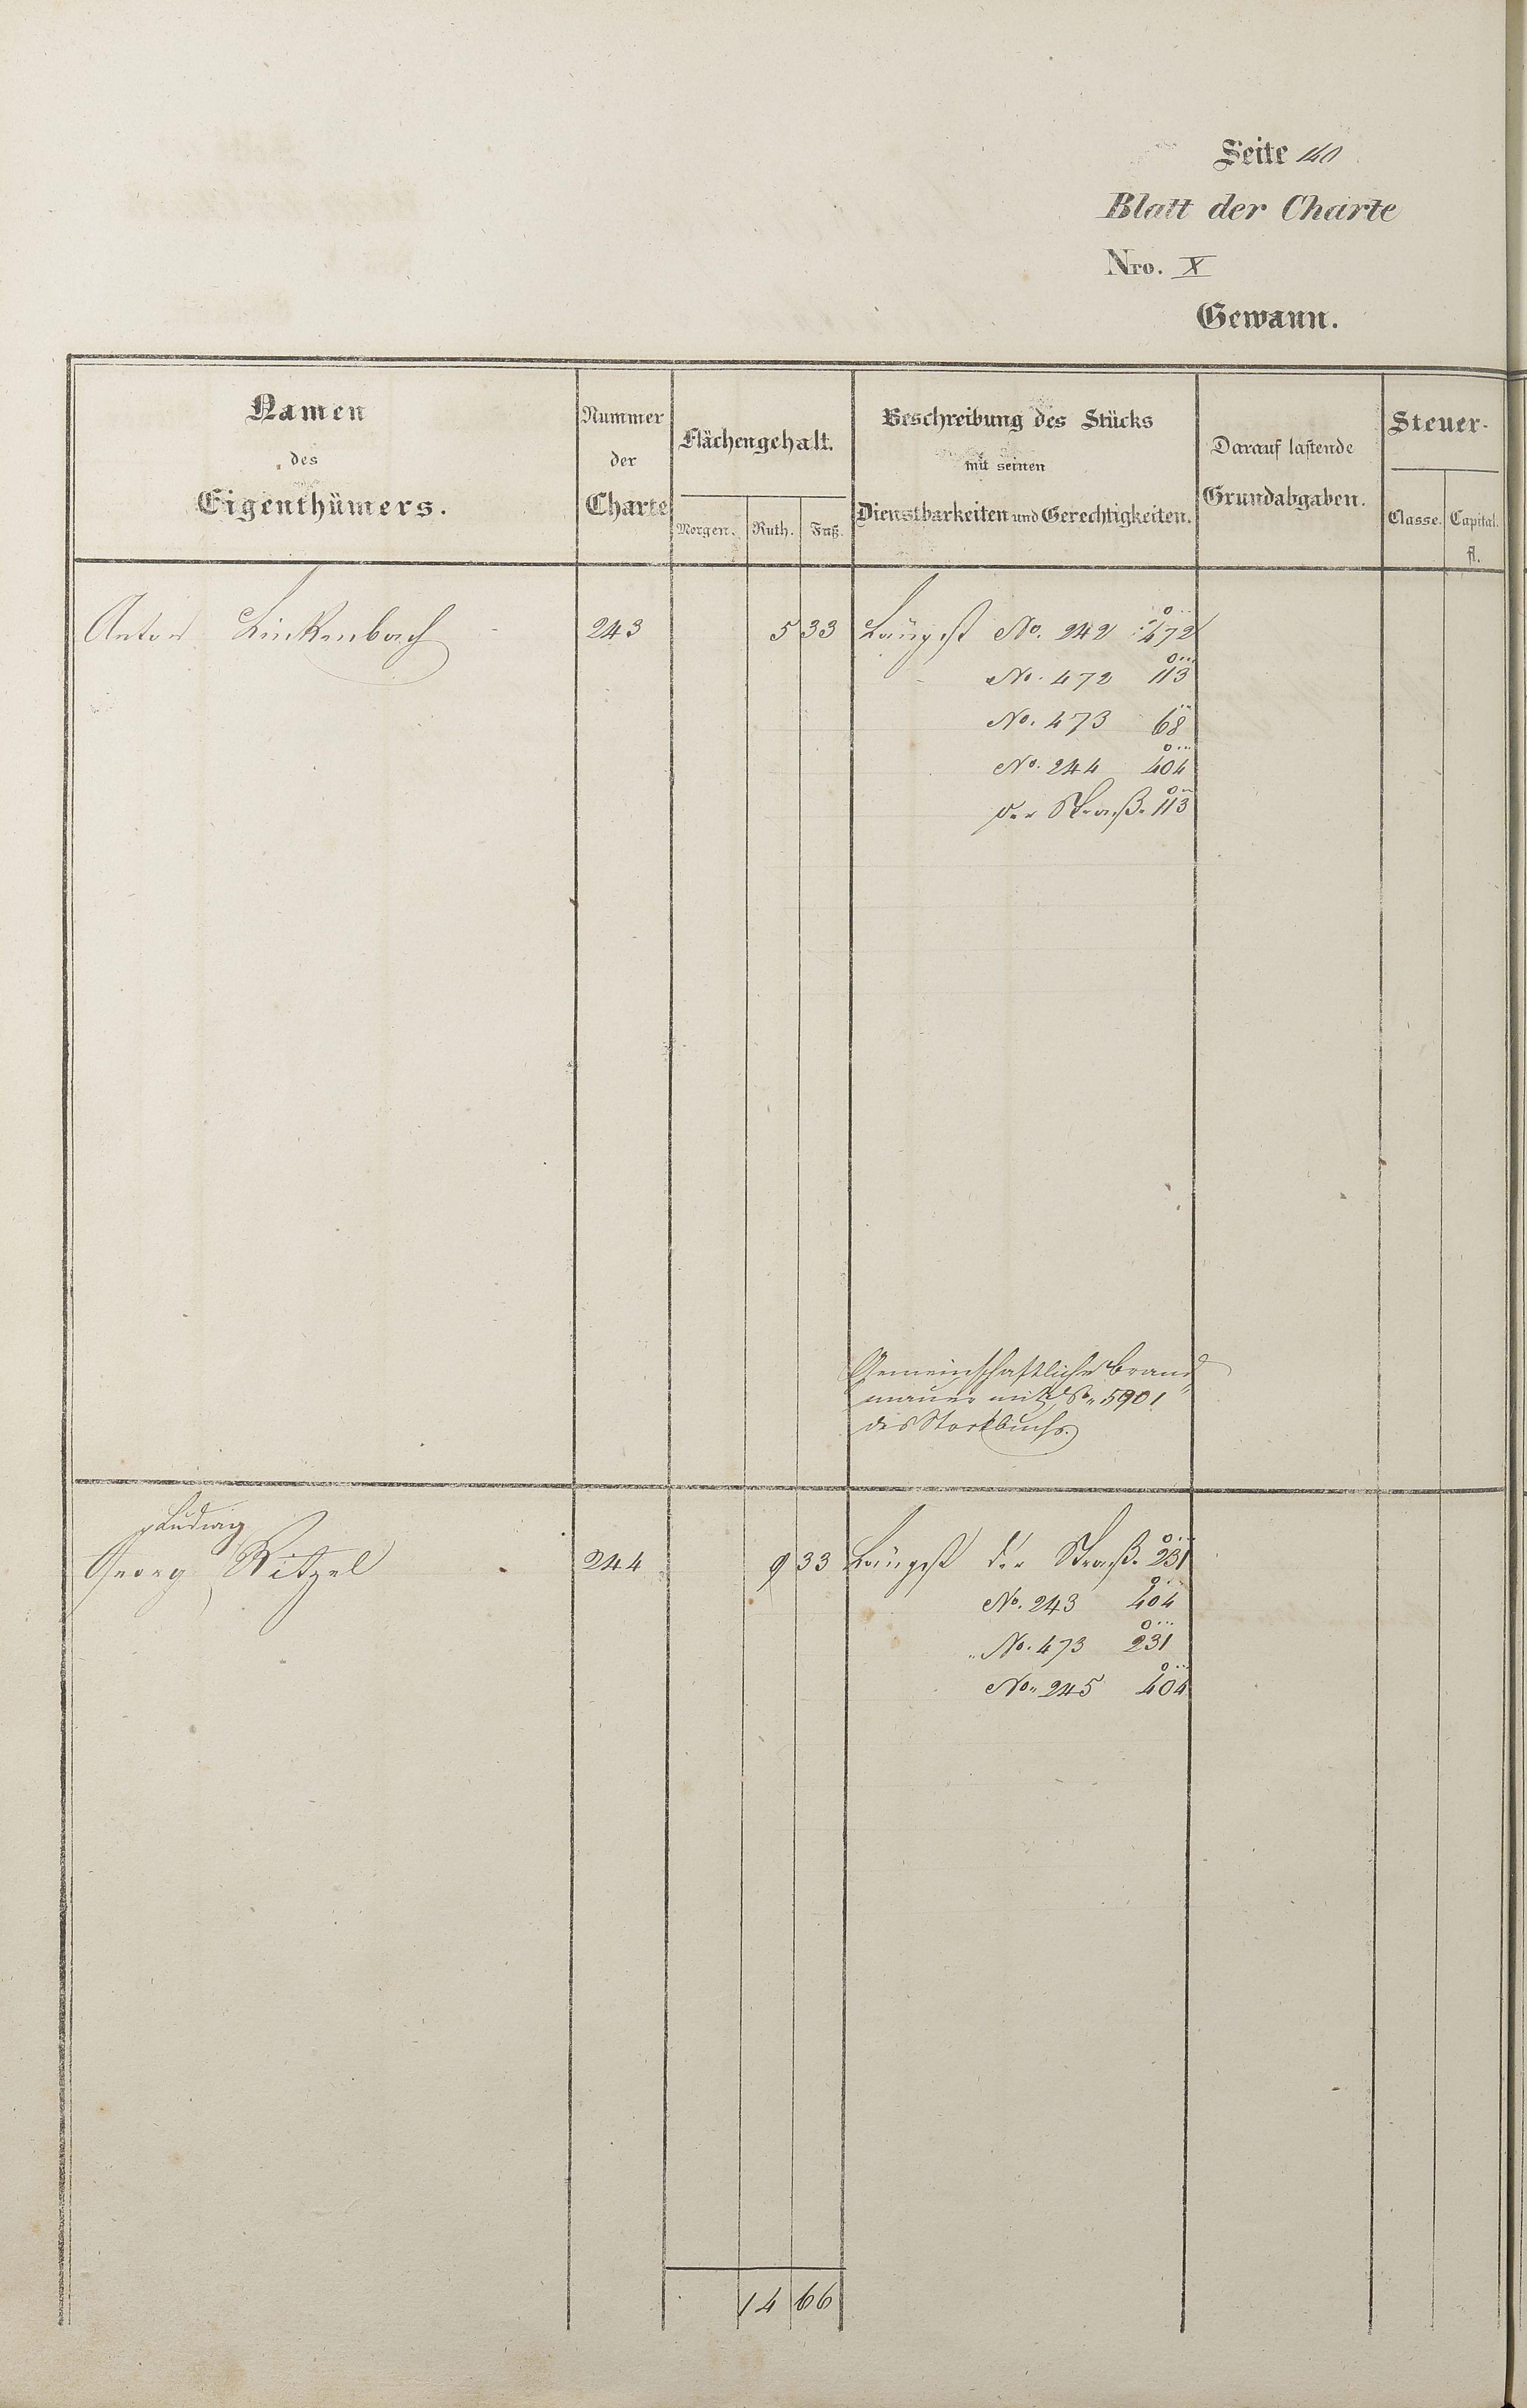 Seite 140
Blatt der Charte
Nro. X
Gewann.
Namen des Eigenthümers.
Nummer der Charte
Flächengehalt.
Morgen. Ruth. Fuß.
Beschreibung des Stücks mit seinen Dienstbarkeiten und Gerechtigkeiten.
Darauf lastende Grundabgaben.
Steuer-
Classe. Capital. fl.
Anton Linkenbach 243 5 33 Längst No. 242 472
No. 472 113
No. 473 68
No. 244 404
der Straße 113
Gemeinschaftliche Brand
mauer mit No. 5901
des Stockbuchs.
Ludwig
Georg Witzel 244 9 33 Längst der Straße 231
No. 243 404
No. 473 231
No. 245 404
14 66